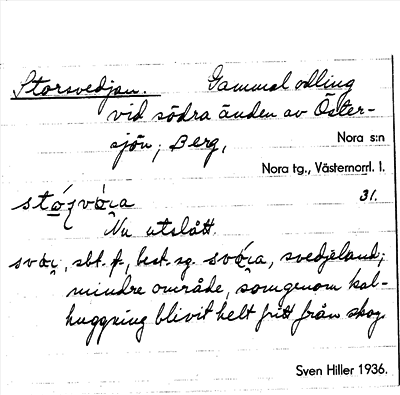 Storsvedjan. Gammal odling
vid södra änden av Öster-
sjön, Berg,
Nora s:n
Nora tg., Västernorrl. l.
31.
Nu utslått.
sbt. f., best. sg. svedjeland;
mindre område, som genom kal-
huggning blivit helt fritt från skog
Sven Hiller 1936.